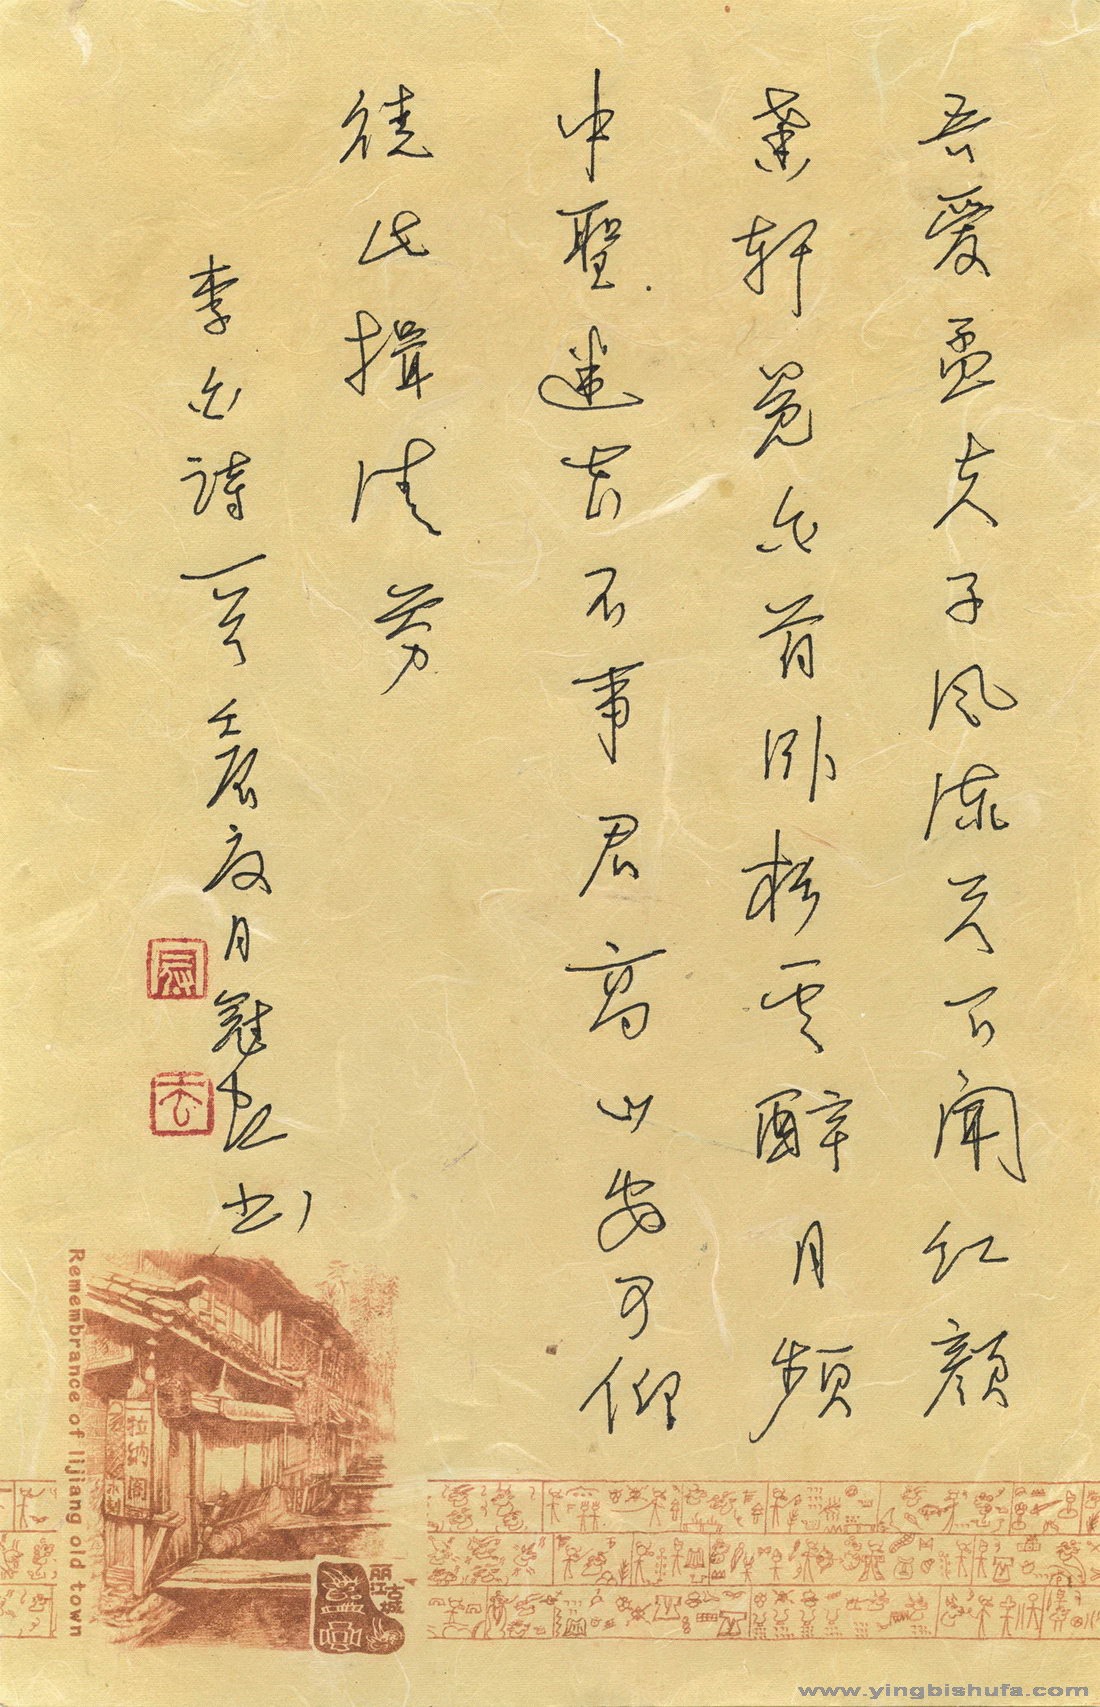 吾爱孟夫子风流天下闻红颜
棄轩冕白首卧松雲醉月频
中聖迷花不事君高山安可仰
徒此揖清芬
李白诗一首壬辰夏月 书
Remembrance of lijiang old town
丽江古城
www.yingbishufa.com